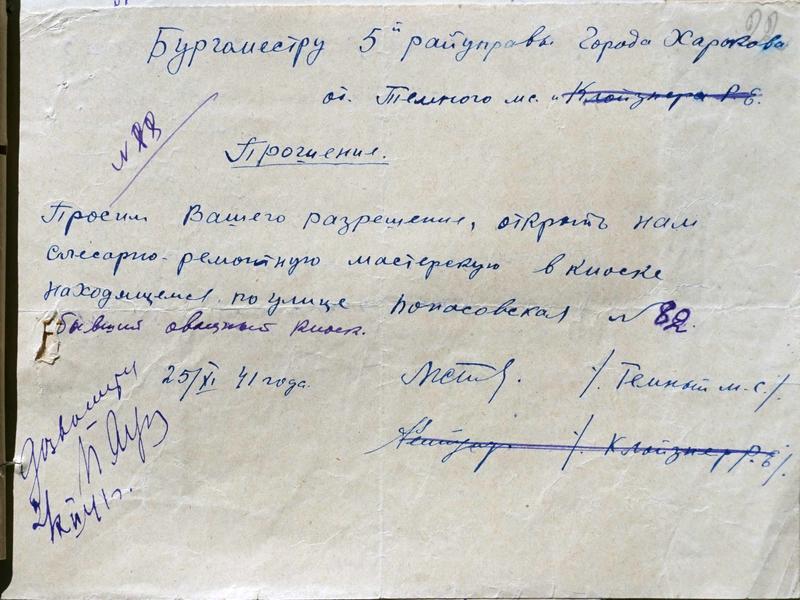 Бургомистру 5й райуправы Города Харькова
от Темного мс. и Клойзнера Р Е.
N 88
Прошение.
Просим Вашего разрешение, открыть нам
слесарно-ремонтную мастерскую в киоске
находящемся по улице Попасовская N 82
бывший овощный киоск.
25/XI 41 года.
/. Темный м.с/.
/. Клойзнер Р.Е/.
Дозволити